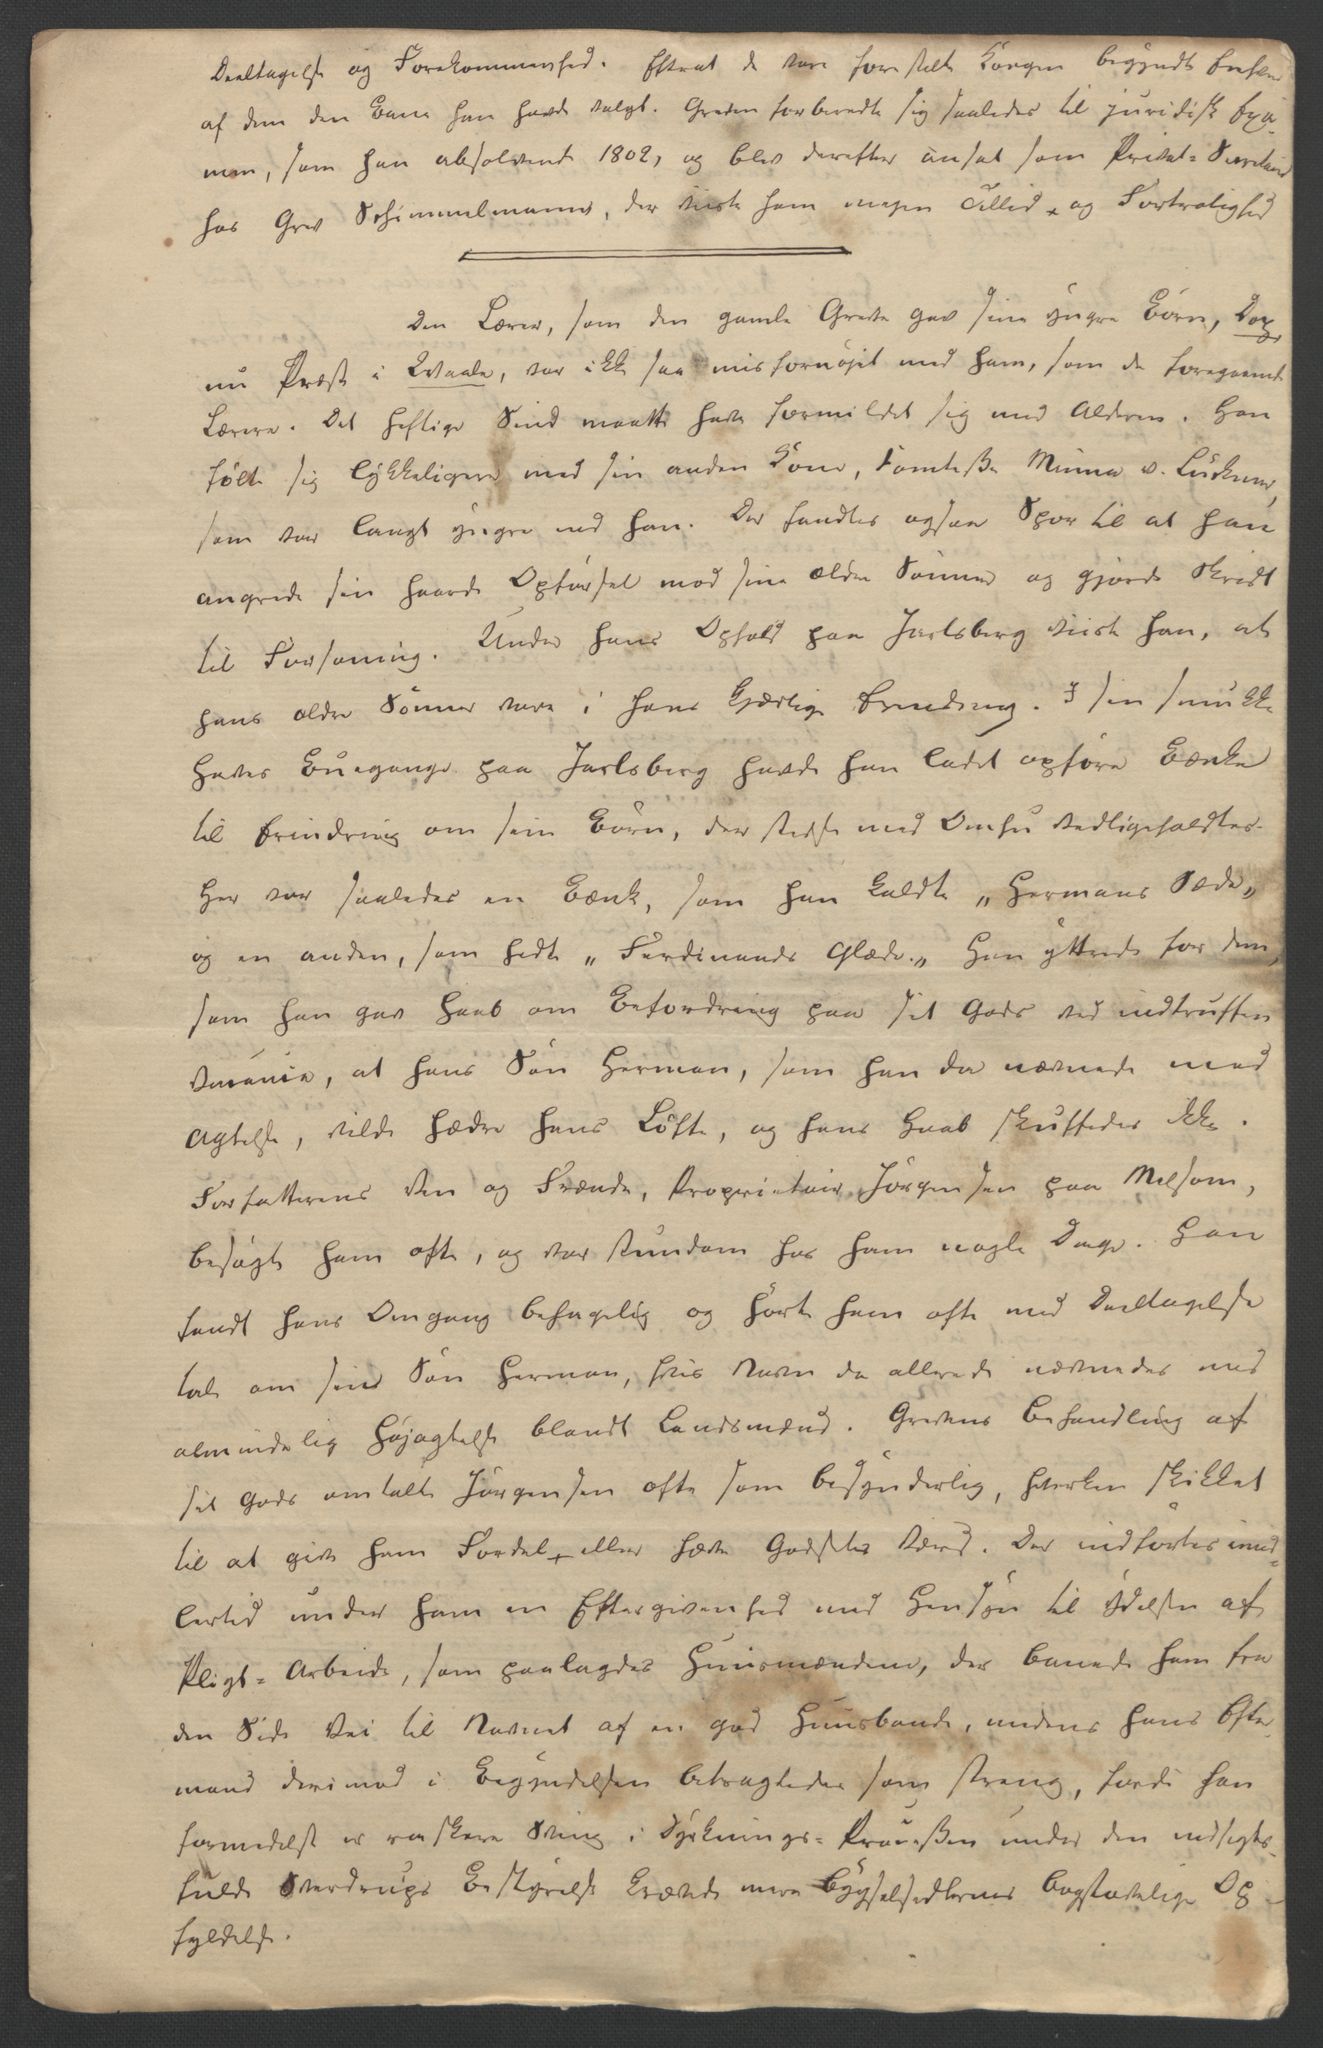 Deeltagelse og Forekommenhed. Efterat de vare forestilte Kongen begyndte Enhver
af dem den Bane han havde valgt. Greven forberedte sig saaledes til juridisk Exa-
men, som han absolverede 1802, og blev derefter ansat som Privat-Secretair
hos Grev Schimmelmann, der viiste ham megen Tillid og Fortrolighed
Den Lærer, som den gamle Greve gav sine yngre Børn, Dop
nu Præst i Vaale, var ikke saa misfornøjet med ham, som de foregaaende
Lærere. Det heftige Sind maatte have formildet sig med Alderen. Han
følte sig lykkeligere med sin anden Kone, Comtesse Minna v. Luckner,
som var langt yngre end han. Der fandtes ogsaa Spor til at han
angrede sin haarde Opførsel mod sine ældre Sønner og gjorde Skridt
til Forsoning. Under hans Ophold paa Jarlsberg viiste han, at
hans ældre Sønner vare i hans kjærlige Erindring. I sin smukke
Haves Buegange paa Jarlsberg havde han ladet opføre Bænke
til Erindring om sine Børn, der stedse med Omhu vedligeholdtes.
Her var saaledes en Bænk, som han kaldte „Hermans Sæde„
og en anden, som hedte „Ferdinands Glæde.„ Han yttrede for dem,
som han gav Haab om Befordring paa sit Gods ved indtruffen
Vacance, at hans Søn Herman, som han da nævnede med
Agtelse, vilde hædre hans Løfte, og hans Haab skuffedes ikke.
Forfatterens Ven og Frænde, Proprietair Jørgensen paa Melsom,
besøgte ham ofte, og var stundom hos ham nogle Dage. Han
fandt hans Omgang behagelig og hørte ham ofte med Deeltagelse
tale om sin Søn Herman, hvis Navn da allerede nævnedes med
almindelig Højagtelse blandt Landsmænd. Grevens Behandling af
sit Gods omtalte Jørgensen ofte som besynderlig, hverken skikket
til at give ham Fordel eller hæve Godsets Værd. Der indførtes imid-
lertid under ham en Eftergivenhed med Hensyn til Ydelsen af
Pligt-Arbeide, som paalagdes Huusmændene, der banede ham fra
den Side Vei til Navnet af en god Huusbonde, medens hans Efter
mand derimod i Begyndelsen betragtedes som streng, fordi han
formedelst et raskere Sving i Dyrknings-Processen under den indsigts-
fulde Sverdrups Bestyrelse krævede mere Bygselsedlernes bogstavelige Op-
fyldelse.